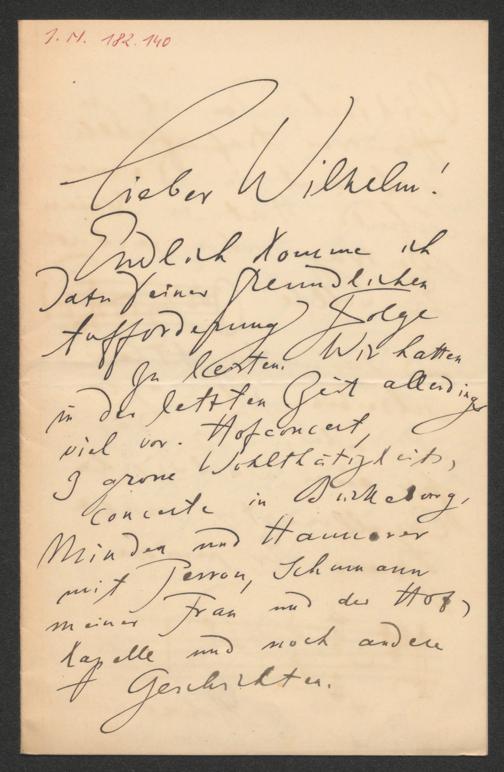 I. N. 182.140
Lieber Wilhelm!
Endlich komme ich
dazu Deiner freundlichen
Aufforderung Folge
zu leisten. Wir hatten
in der letzten Zeit allerdings
viel vor. Hofconcert,
3 grosse Wohlthätigkeits-
concerte in Bückeburg,
Minden und Hannover
mit Perron, Schumann
meiner Frau und der Hof-
kapelle und noch andere
Geschichten.